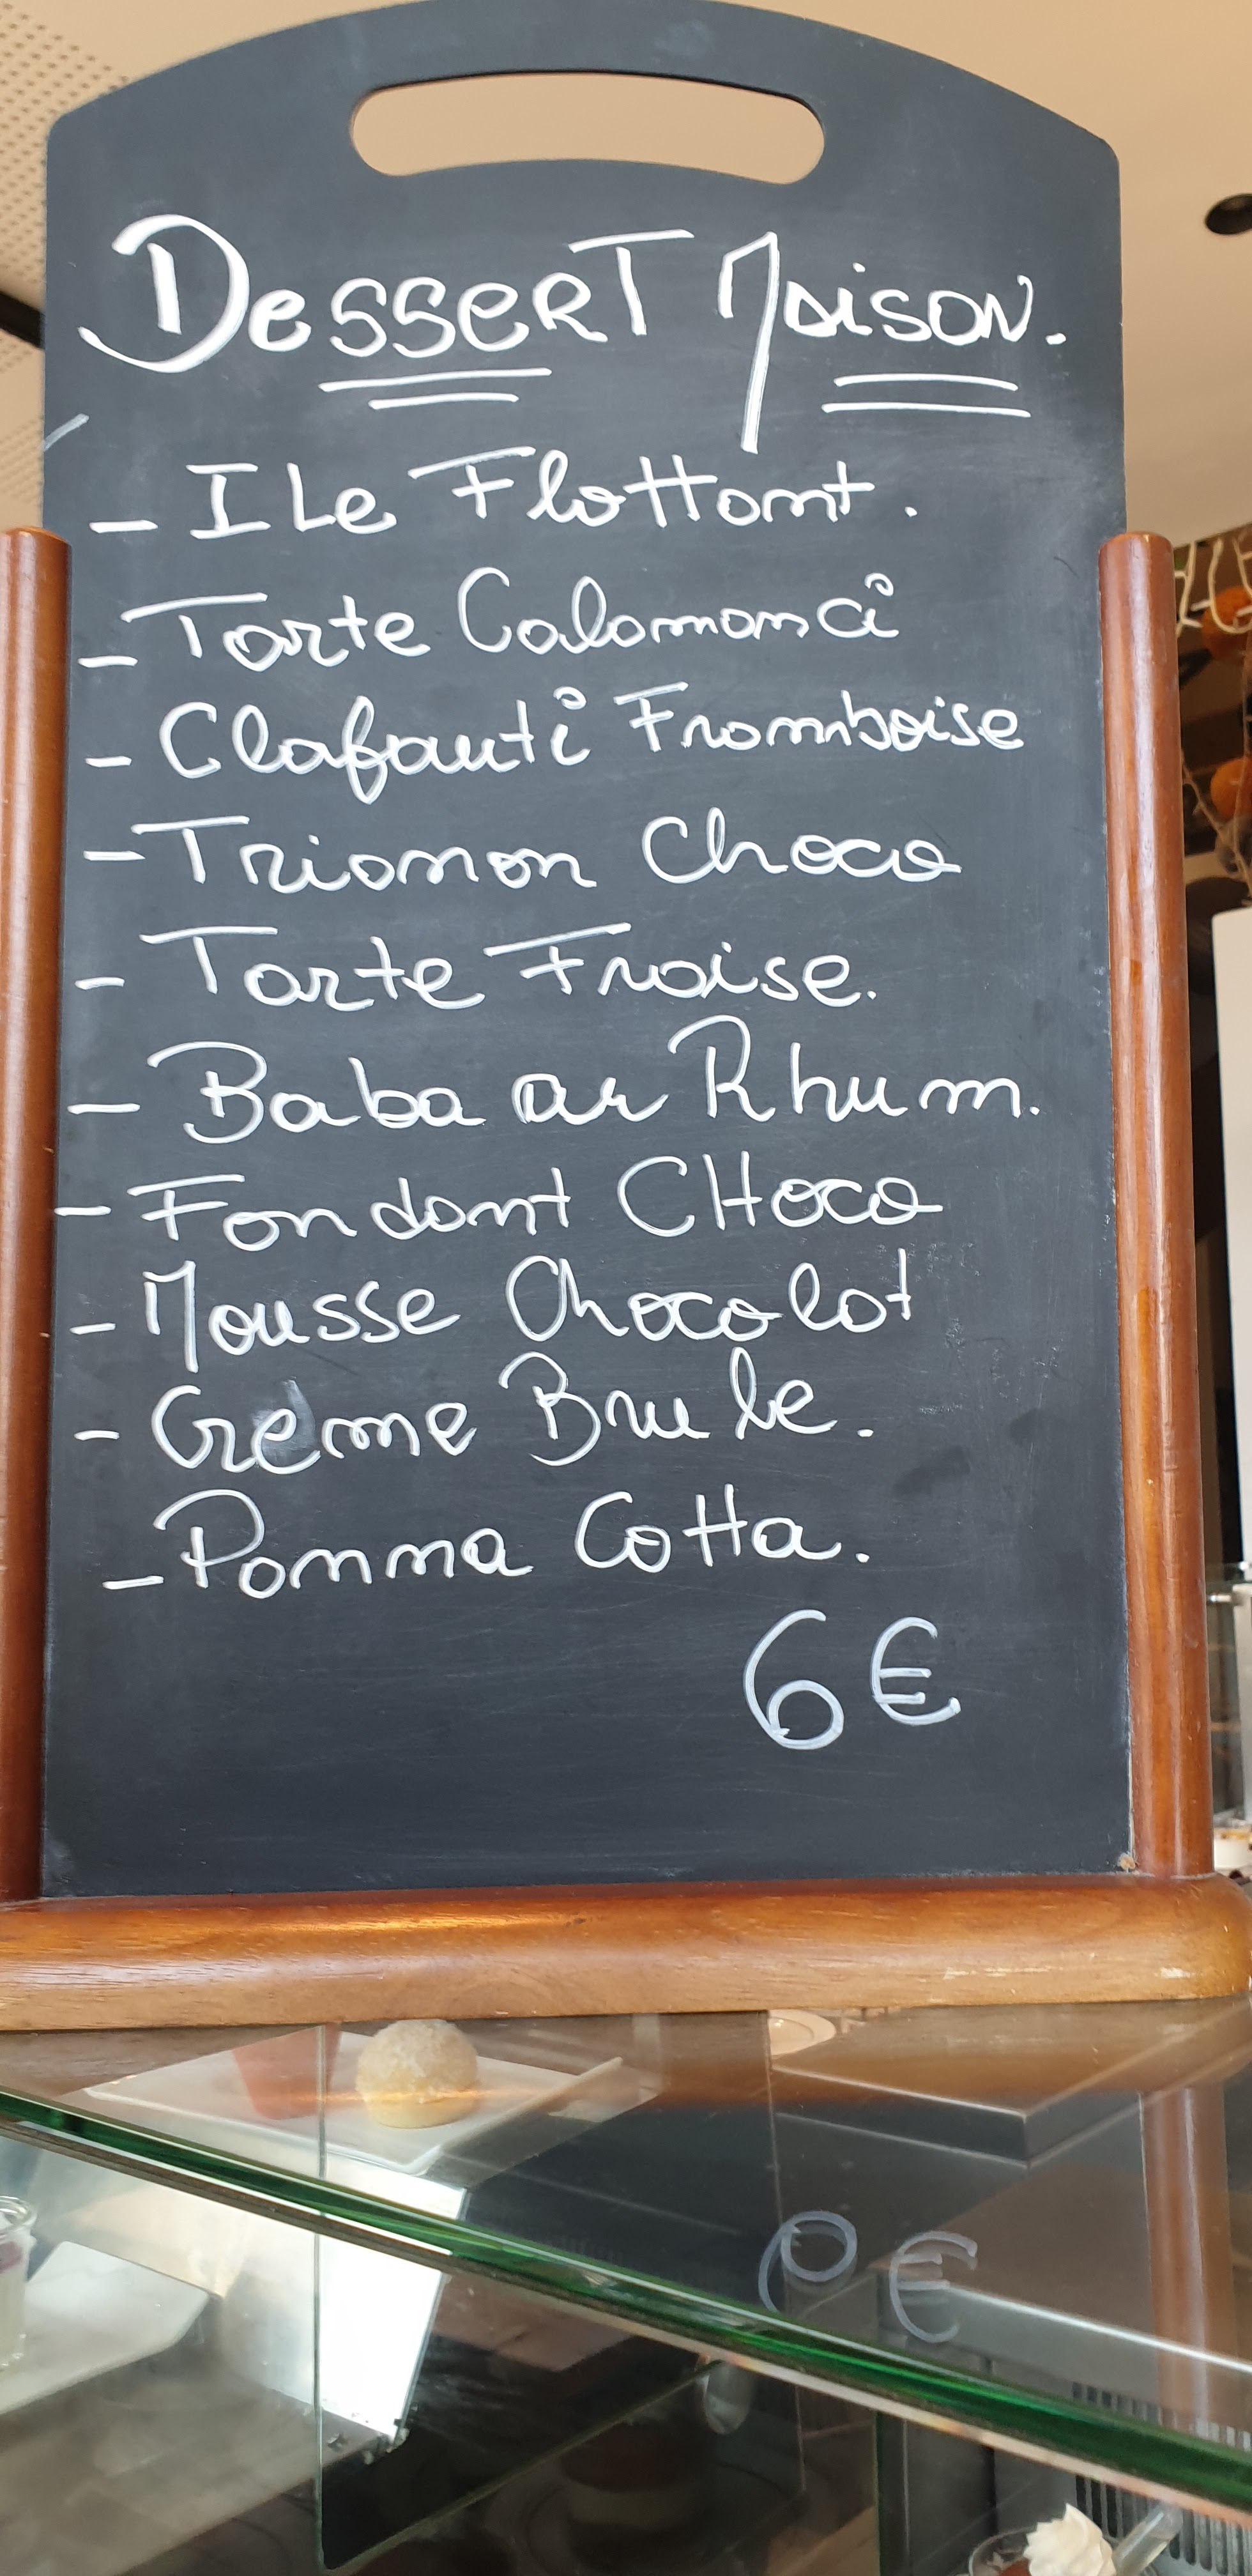 Dessert Maison.
- Ile Flottant.
- Tarte Calamanci
- Clafauti Framboise
- Trianon Choco
- Tarte Fraise.
- Baba au Rhum.
- Fondant CHoco
- Mousse Chocolat
- Creme Brule.
- Panna Cotta.
6€